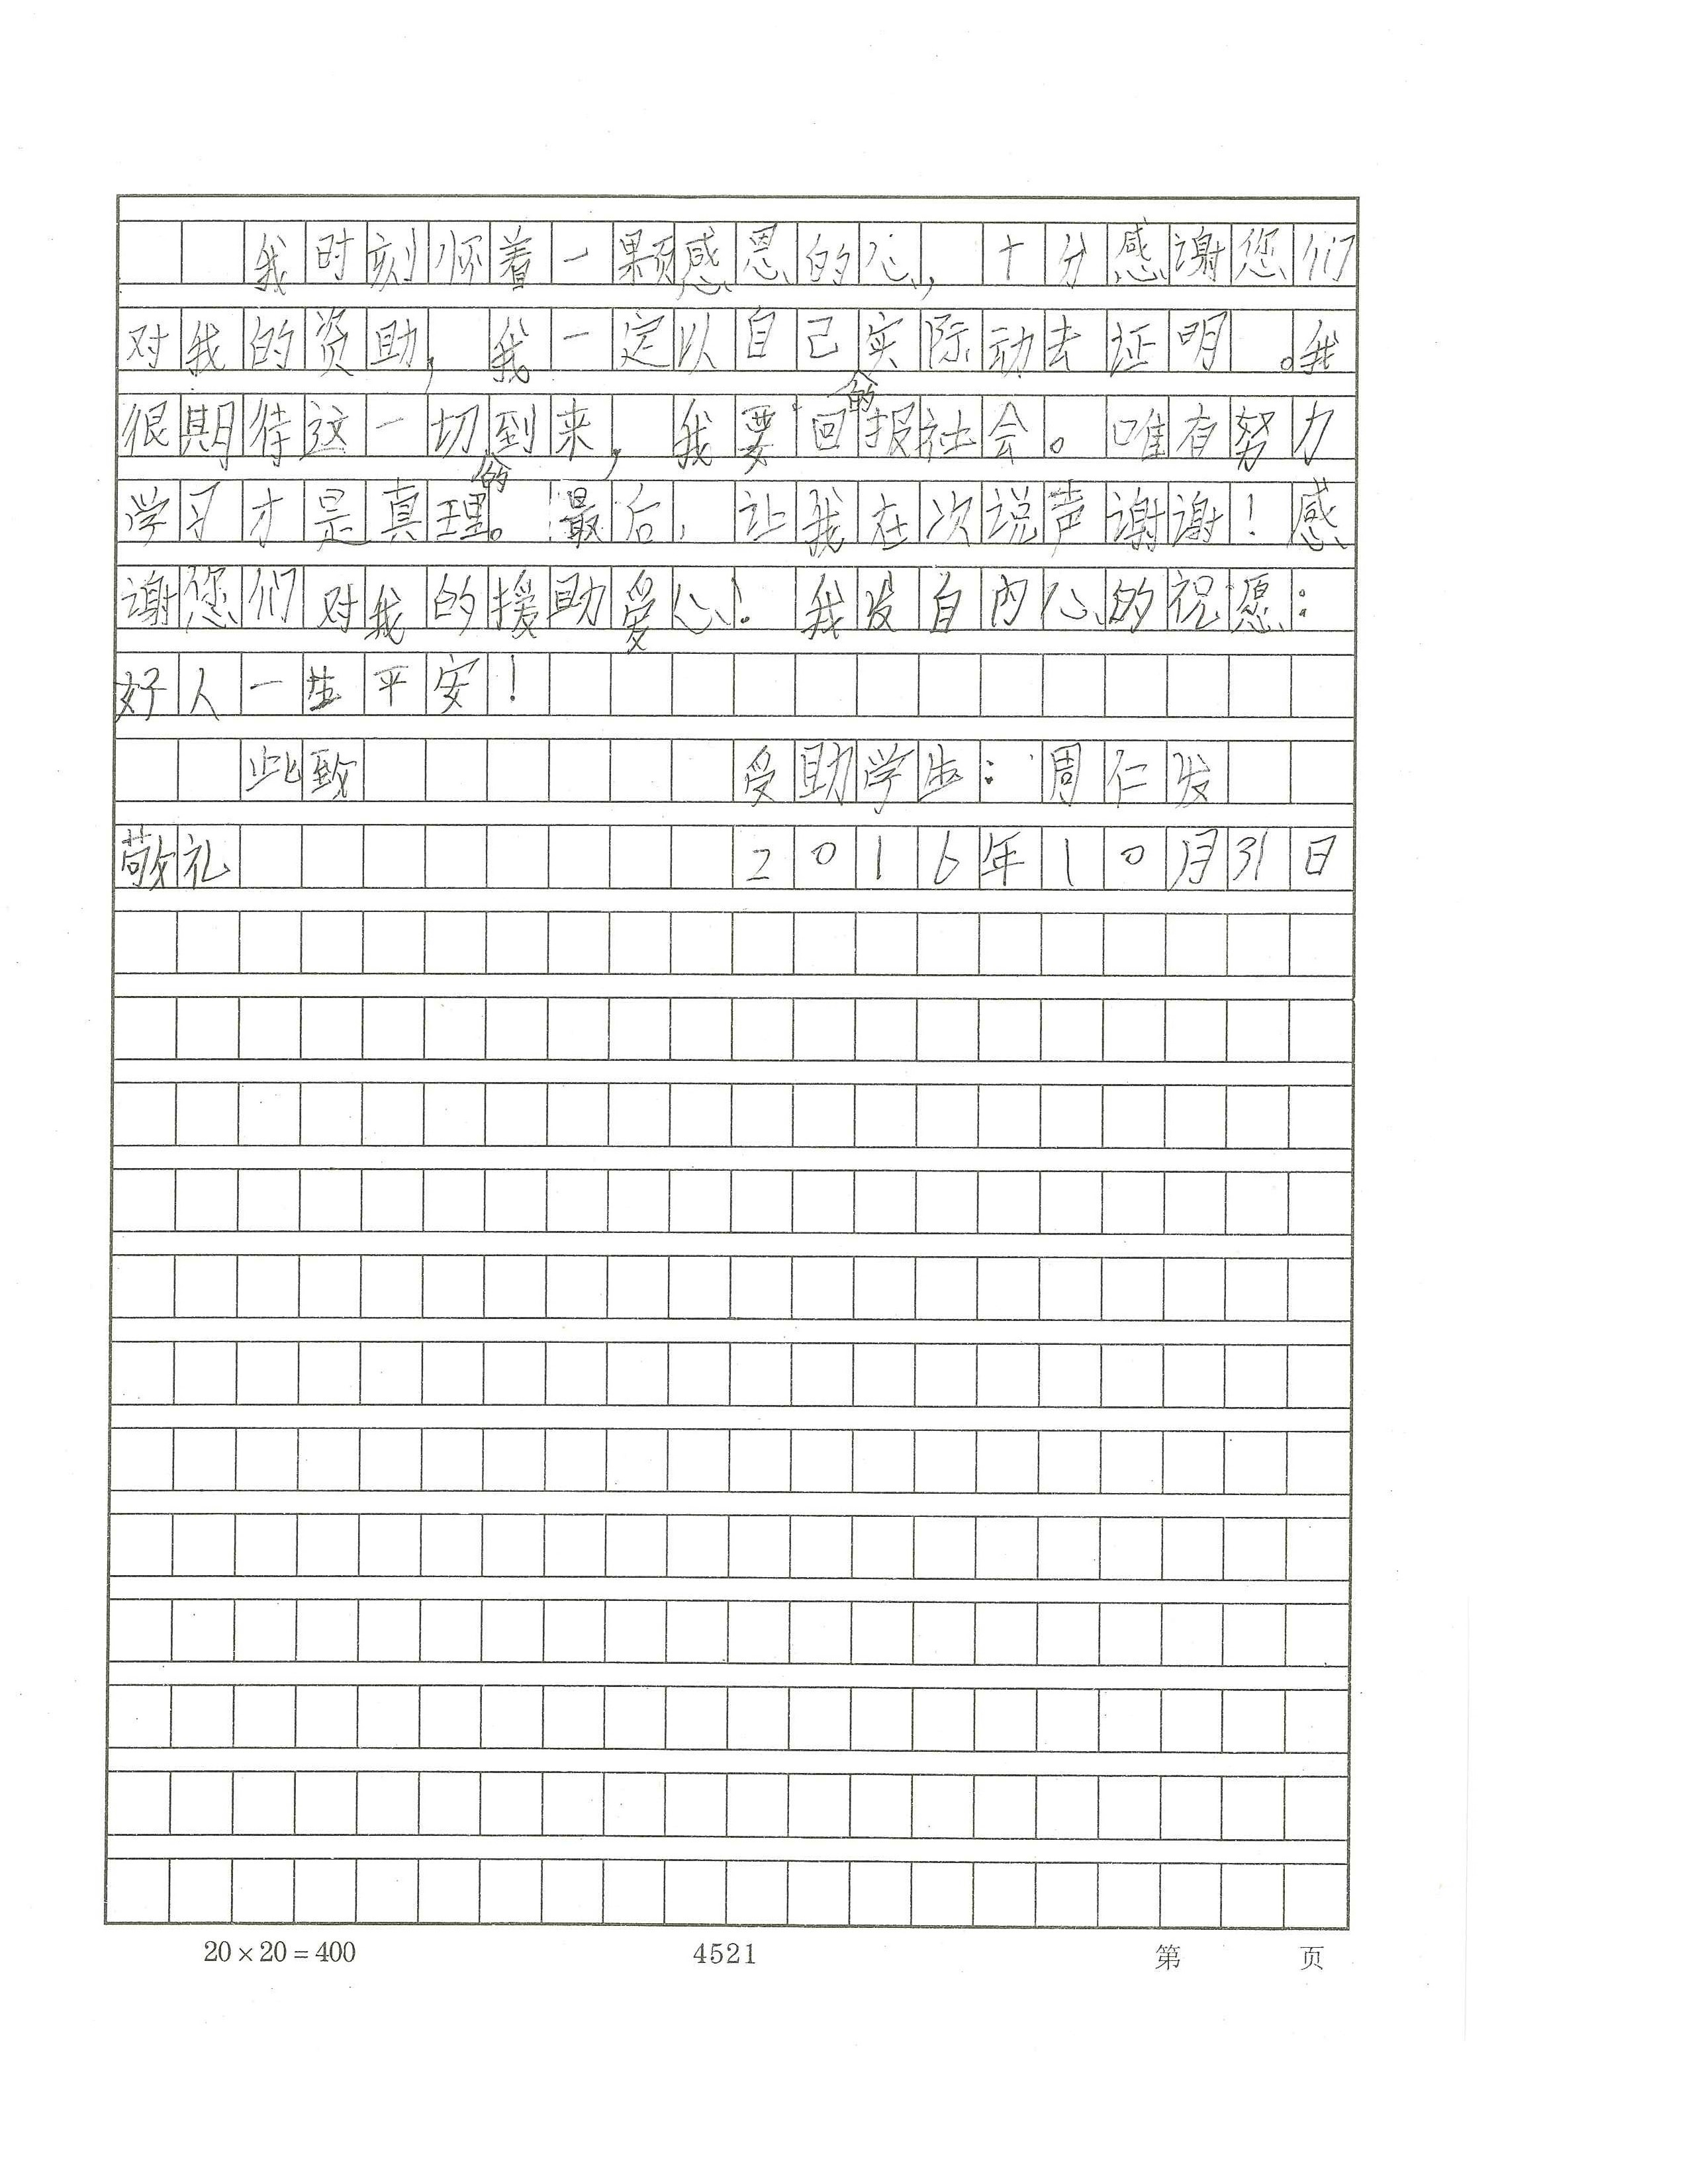 我时刻怀着一颗感恩的心，十分感谢您们
对我的资助，我一定以自己实际动去证明。我
很期待这一切的到来，我要回的报社会。唯有努力
学习才是真理的。最后，让我在次说声谢谢！感
谢您们对我的援助爱心！我发自内心的祝愿：
好人一生平安！
此致 受助学生：周仁发
敬礼 2016年10月31日
20×20=400 4521 第 页